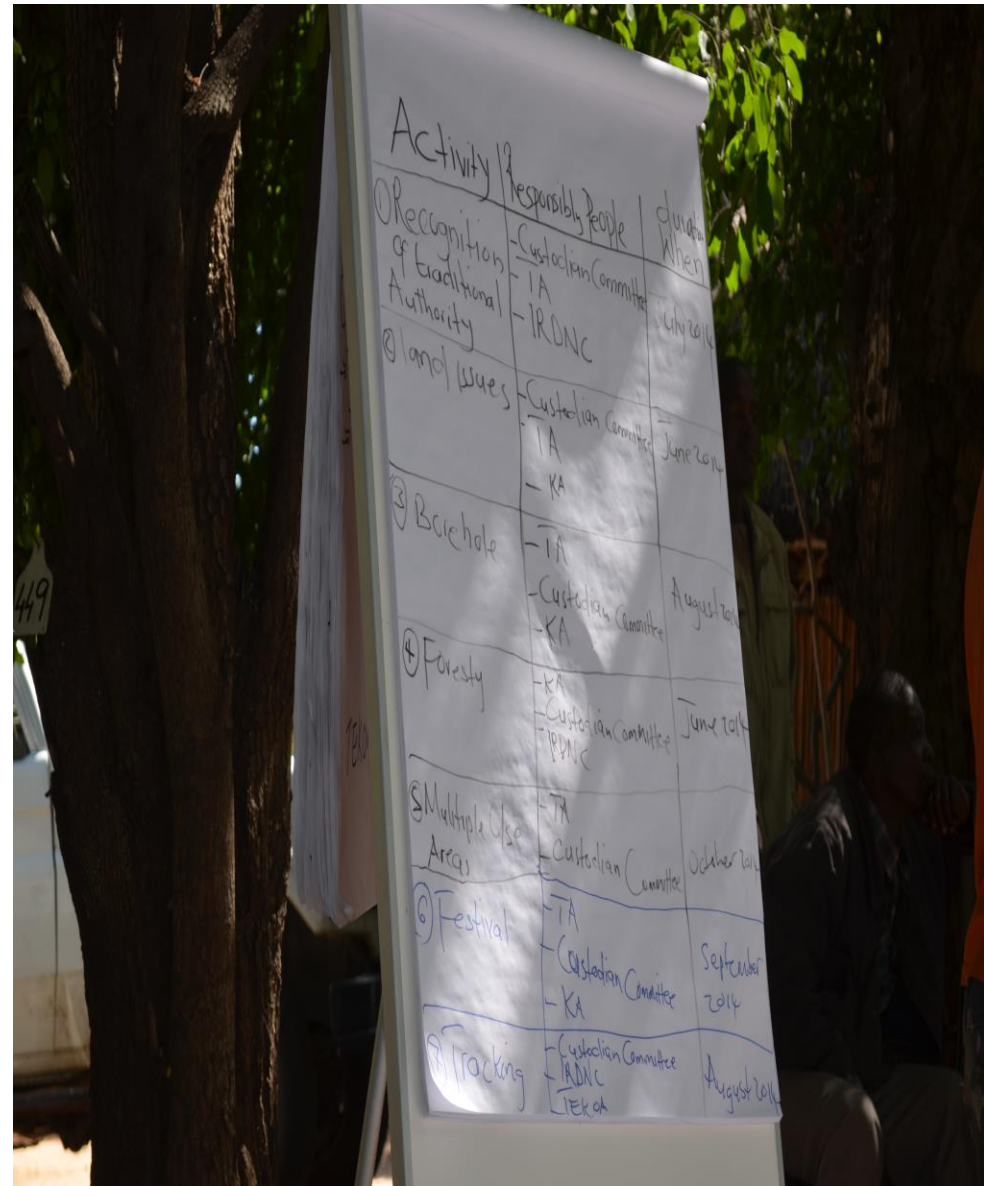 Activity | Responsibly People | duration When
① Recognition of traditional Authority
- Custodian Committee
- TA
- IRDNC
July 2014
② land issues
- Custodian Committee
- TA
- KA
June 2014
③ Borehole
- TA
- Custodian Committee
- KA
August 2014
④ Foresty
- KA
- Custodian Committee
- IRDNC
June 2014
⑤ Multiple Use Areas
- TA
- Custodian Committee
October 2014
⑥ Festival
- TA
- Custodian Committee
- KA
September 2014
Tracking
- Custodian Committee
- IRDNC
- TEKOA
August 2014
449